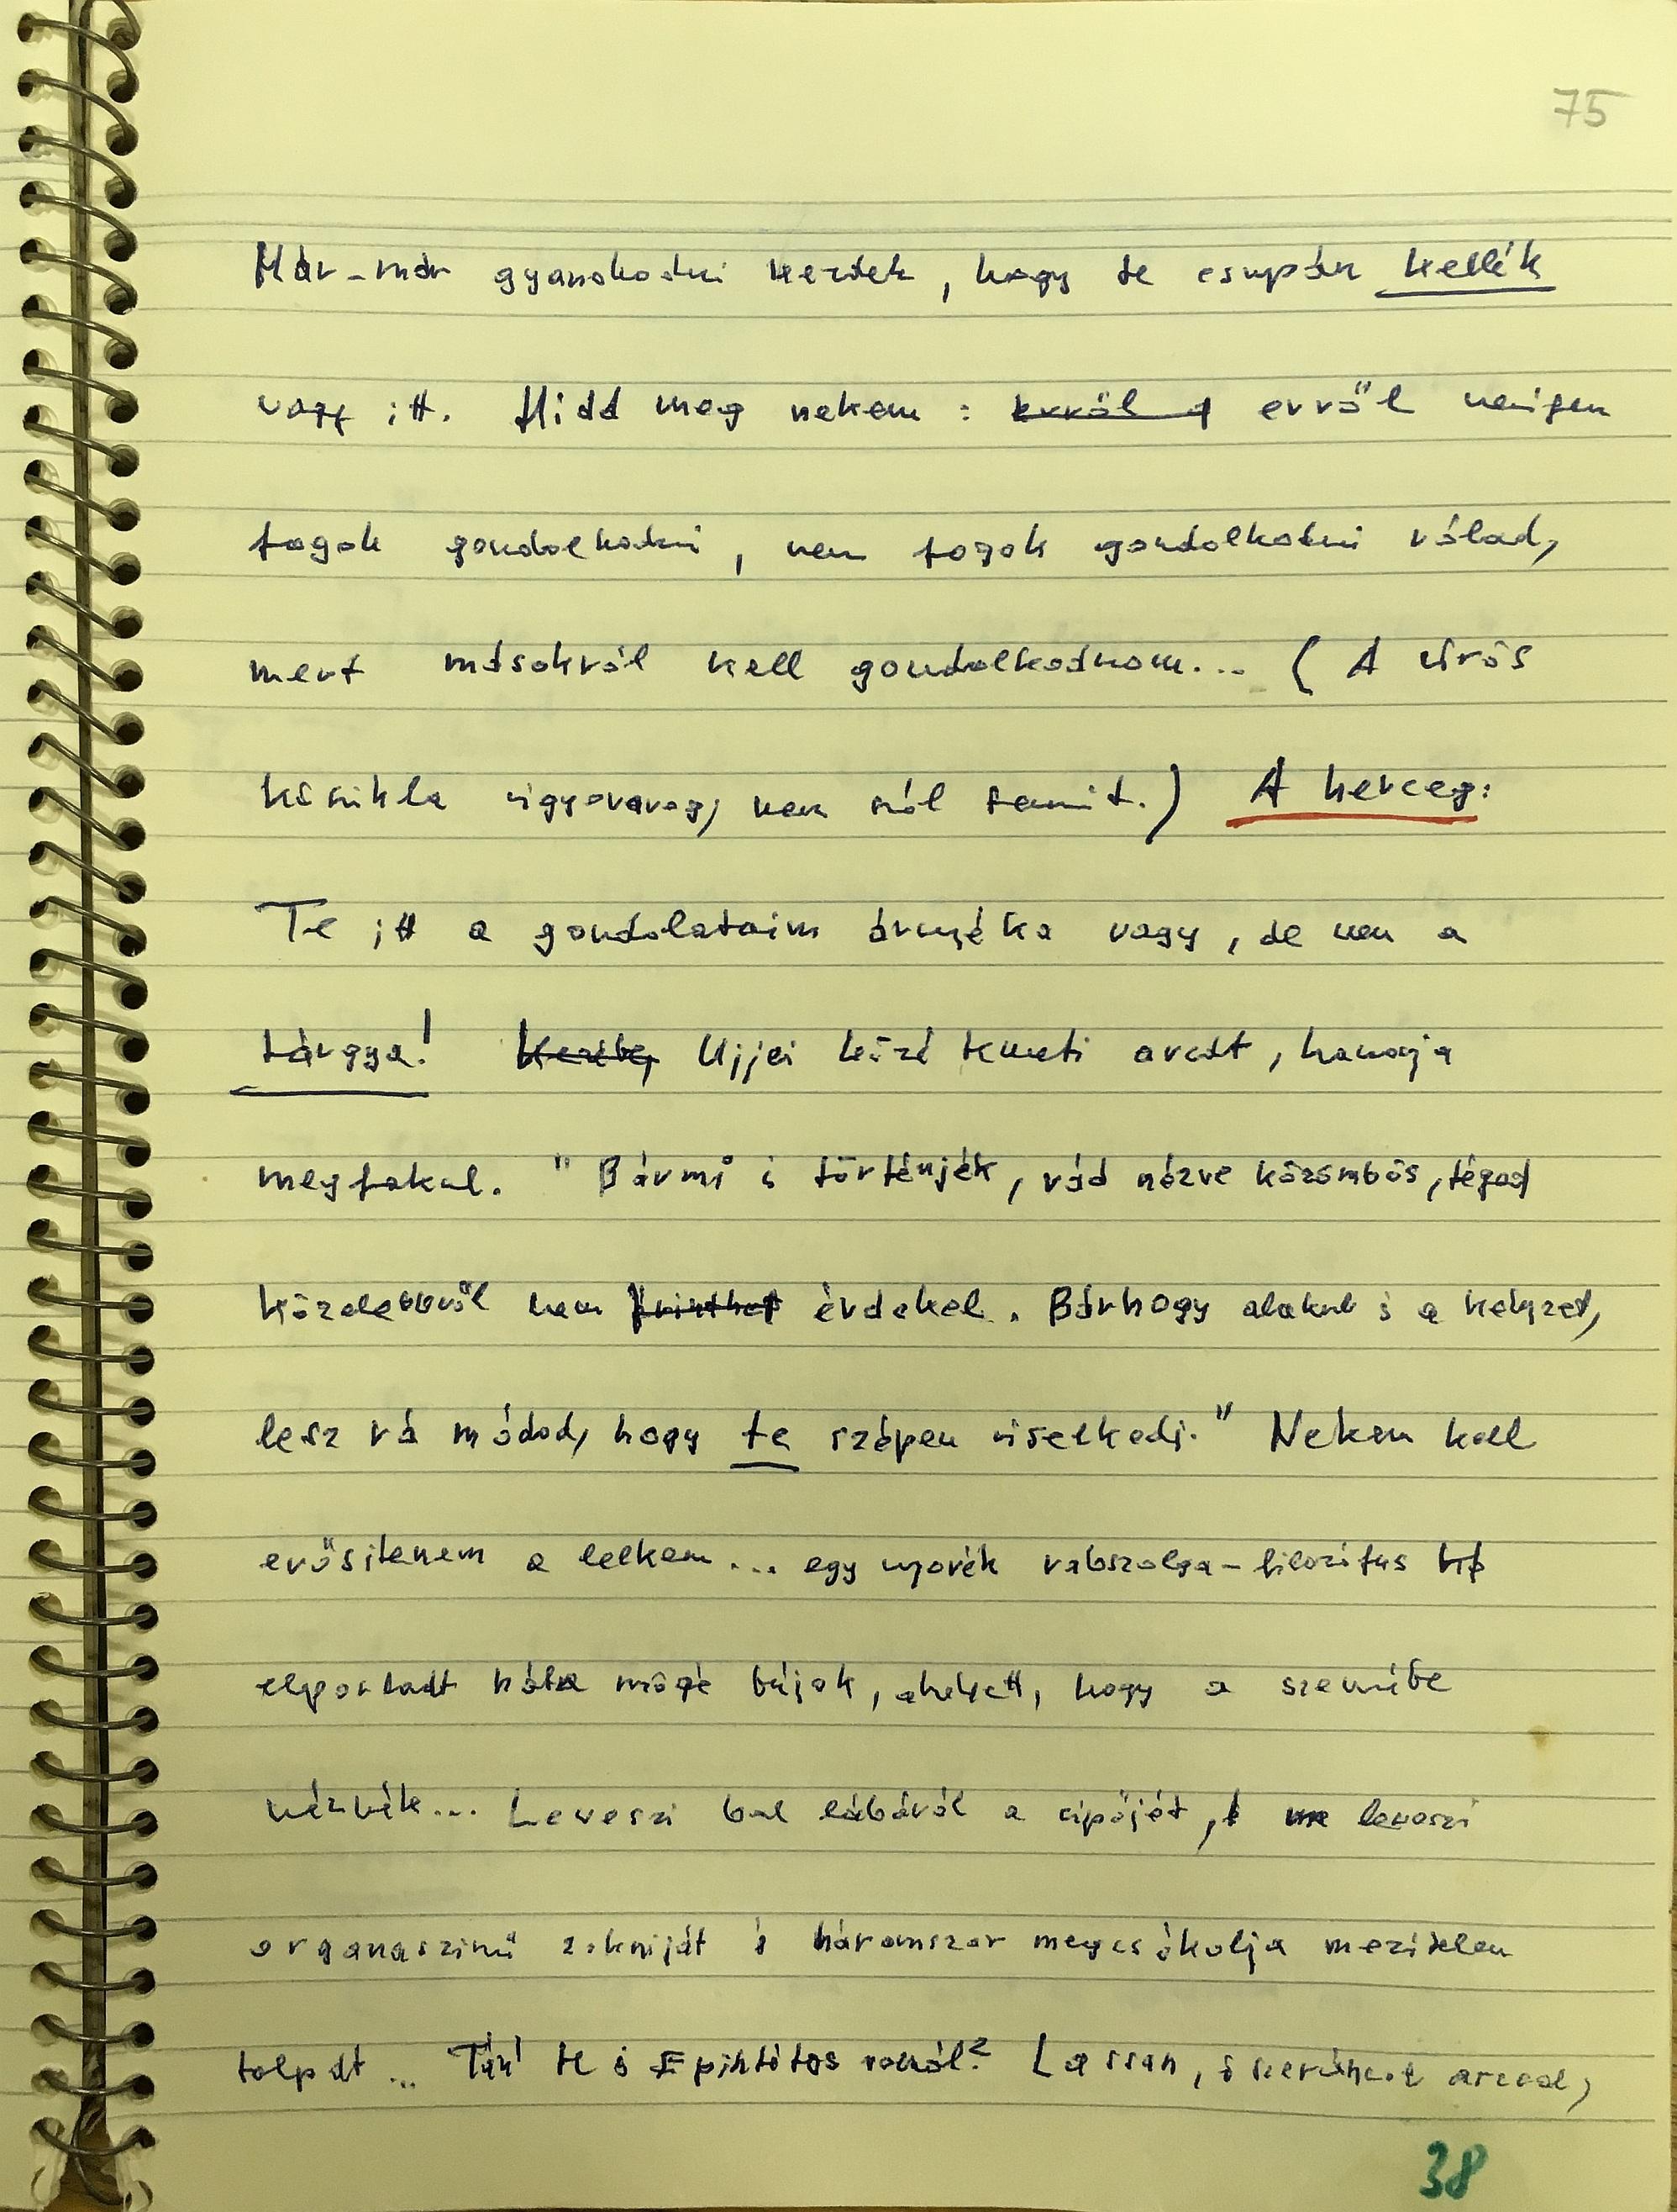 75
Már-már gyanakodni kezdek, hogy te csupán kellék
vagy itt. Hidd meg nekem: erről erről nemigen
fogok gondolkodni, nem fogok gondolkodni rólad,
mert másokról kell gondolkodnom... (A
kőszikla vigyorarog, nem szól semmit.) A herceg:
Te itt a gondolataim árnyéka vagy, de nem a
tárgya! Ujjei közé temeti arcát, hanogja
megfakul. "Bármi is történjék, rád nézve közömbös, téged
közelebbről nem érdekel. Bárhogy alakul is a helyzet,
lesz rá módod, hogy te szépen viselkedj." Nekem kell
erősítenem a lelkem... egy nyorék rabszolga-filozófus
elporladt háta mögé bújok, ahelyett, hogy a szemébe
néznék... Leveszi bal lábáról a cipőjét, leveszi
organaszinű zokniját és háromszor megcsókolja mezitelen
talpát... Tán te is Epiktétos volnál? Lassan, arccal,
38